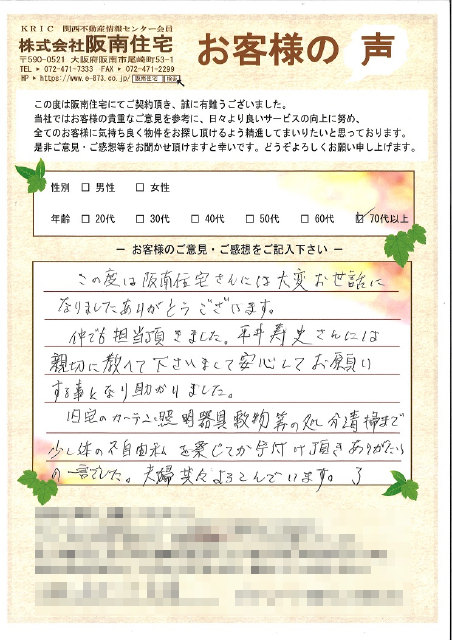 KRIC 関西不動産情報センター会員
株式会社阪南住宅
〒590-0521 大阪府阪南市尾崎町53-1
TEL ▶ 072-471-7333 FAX ▶ 072-471-2299
HP ▶ https://www.e-873.co.jp/ 阪南住宅 検索
お客様の 声
この度は阪南住宅にてご契約頂き、誠に有難うございました。
当社ではお客様の貴重なご意見を参考に、日々より良いサービスの向上に努め、
全てのお客様に気持ち良く物件をお探し頂けるよう精進してまいりたいと思っております。
是非ご意見・ご感想等をお聞かせ頂けますと幸いです。どうぞよろしくお願い申し上げます。
性別 □ 男性 □ 女性
年齢 □ 20代 □ 30代 □ 40代 □ 50代 □ 60代 ☑ 70代以上
― お客様のご意見・ご感想をご記入下さい ―
この度は阪南住宅さんには大変お世話に
なりましたありがとうございます。
仲でも担当頂きました。平井寿史さんには
親切に教へて下さいまして安心してお願い
する事となり助かりました。
旧宅のカーテン、照明器具敷物等の処分清掃まで
少し体の不自由私を案じてか片付け頂きありがたい
の一言でした。夫婦共々よろこんでいます。